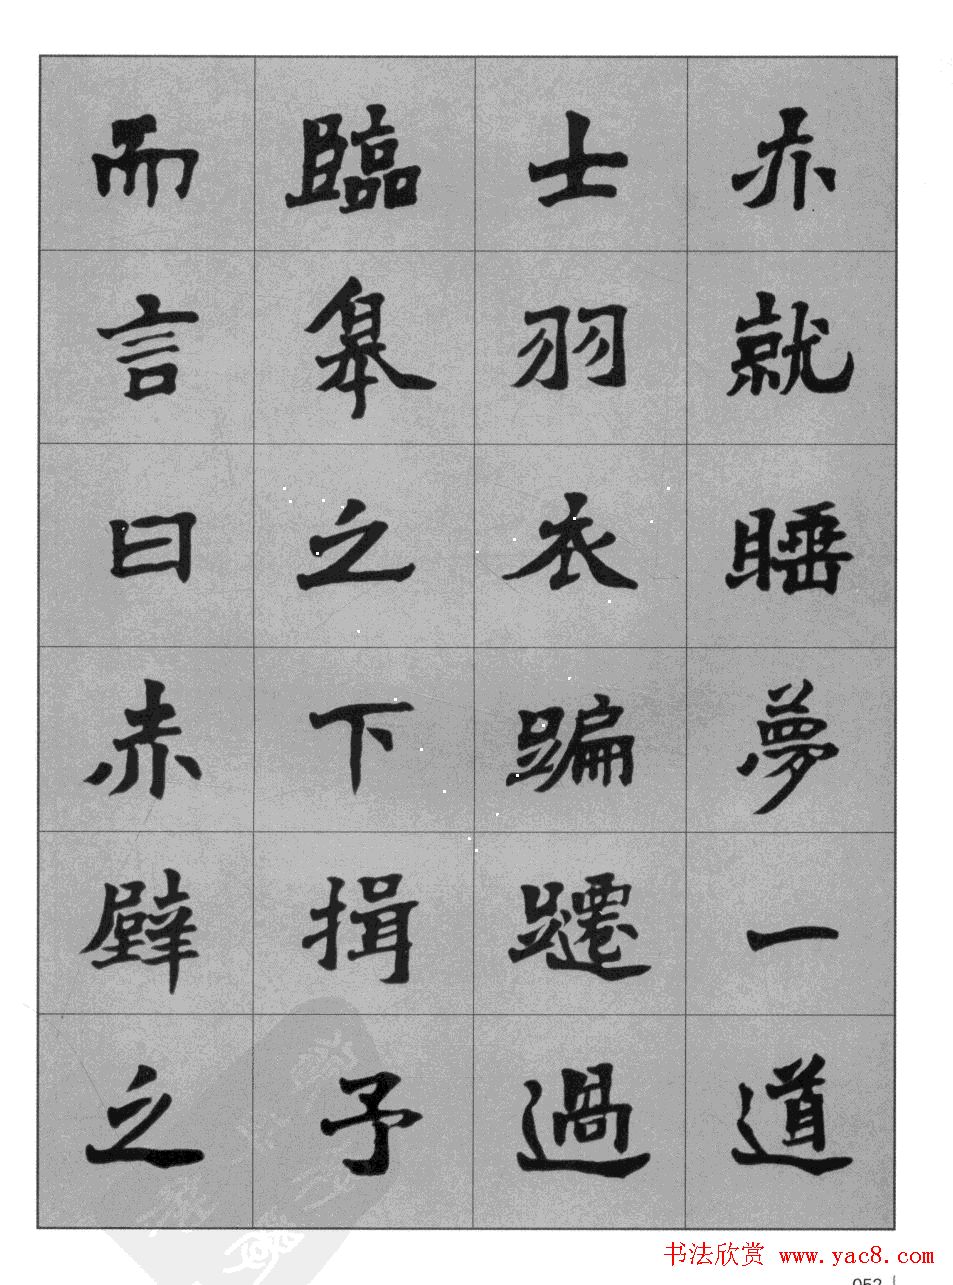 亦就睡夢一道
士羽衣蹁躚過
臨皋之下揖予
而言曰赤壁之
书法欣赏 www.yac8.com
052